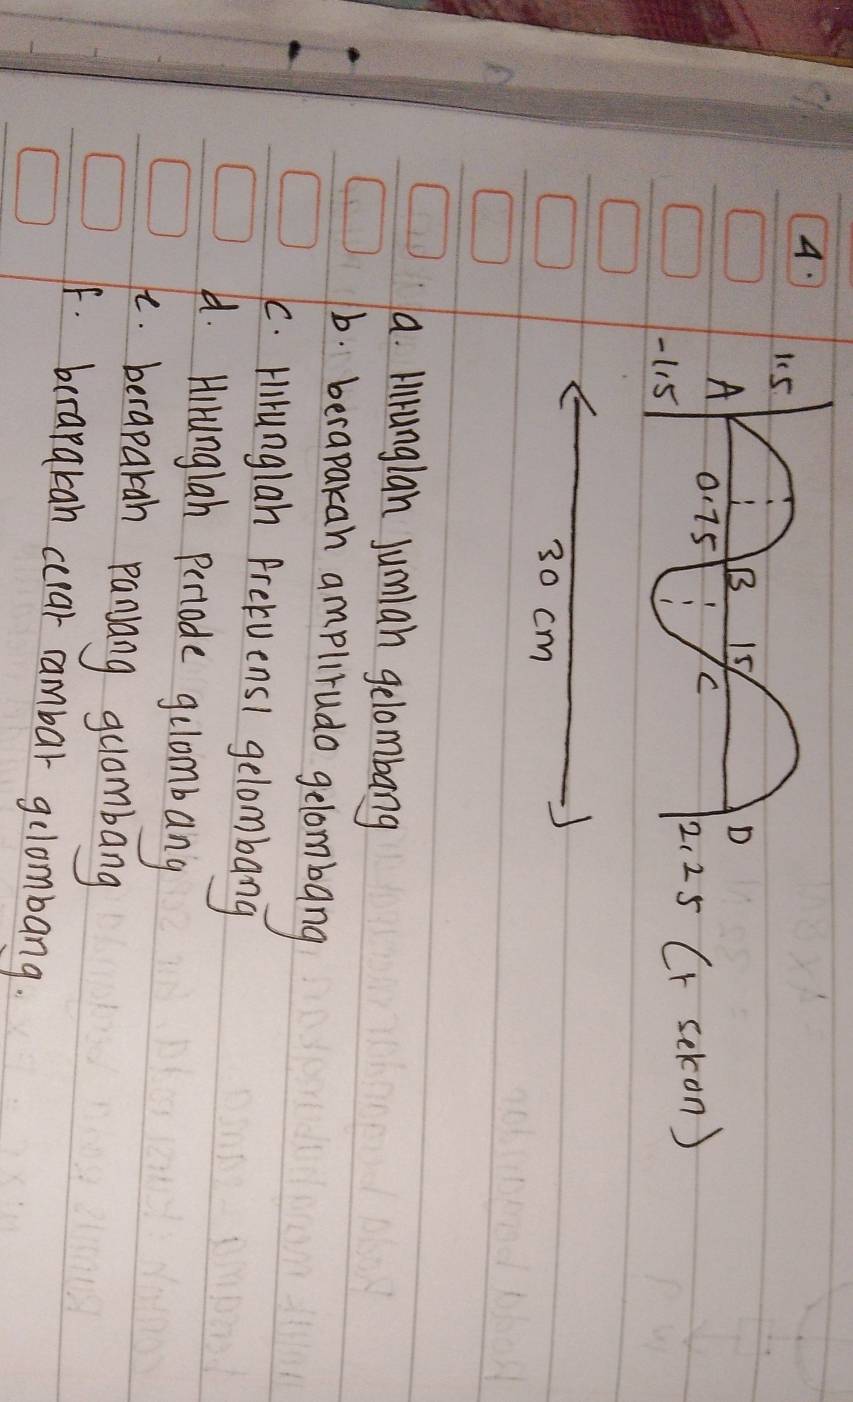 4.
1.5
A B 15 D
0.75 C 2,25 (t sekon)
-1.5
30 cm
a. Hitunglah jumlah gelombang
b. berapakah amplitudo gelombang
c. Hitunglah frekuensi gelombang
d. Hitunglah Periode gelombang
e. berapakah panjang gelombang
f. berapakah cepat rambat gelombang.